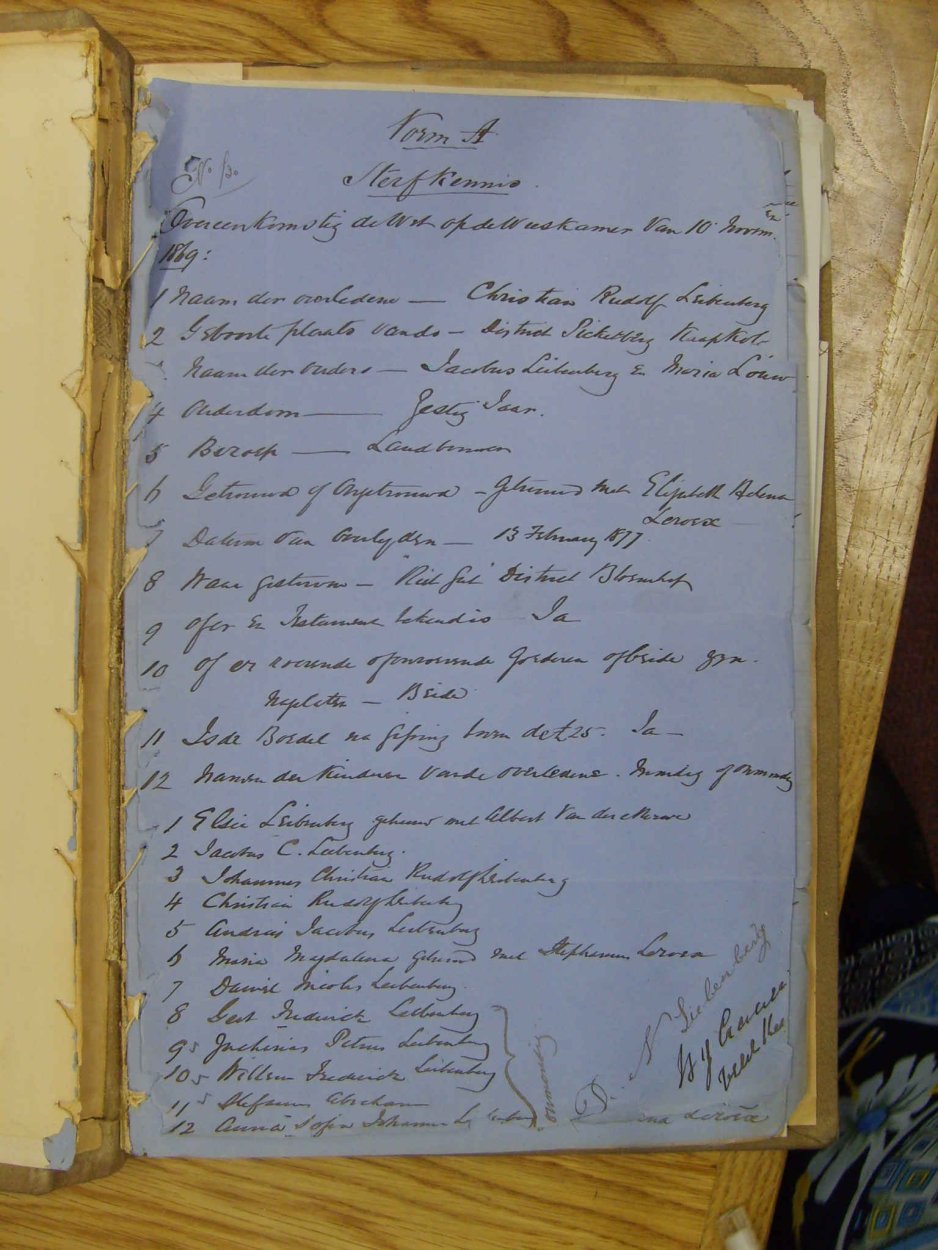 Vorm A
No 130
Sterfkennis.
Overeenkomstig de Wet op de Weeskamer Van 10 Novem.
1869:
1 Naam der overledene — Christian Rudolf Leibenberg
2 Geboorte plaats van do — District Picketberg Kaap Kol
Naam der ouders — Jacobus Leibenberg En Maria Louw
4 Ouderdom — Zestig Jaar.
5 Beroep — Landbouwer
6 Getrouwd of Ongetrouwd — Gehuwd met Elizabeth Helena
Leroux
7 Datum van Overlyden — 13 February 1877.
8 Waar gestorven — Riet Gat District Bloemhof
9 Of er En Testament bekend is Ja
10 Of er roerende of onroerende Goederen of beide zyn.
Nagelaten — Beide
11 Is de Boedel na gissing boven de £25. Ja —
12 Namen der Kinderen Van de Overledene. Mondig of Onmondig
1 Elsie Leibenberg gehuwd met Albert Van der Merwe
2 Jacobus C. Leibenberg.
3 Johannes Christian Rudolf Leibenberg
4 Christian Rudolf Leibenberg
5 Andries Jacobus Leibenberg
6 Maria Magdalena gehuwd met Stephanus Leroux
7 Daniel Nicolas Leibenberg.
8 Gert Frederick Leibenberg
9 Petrus Leibenberg
10 Willem Frederick Leibenberg
11 Stefanus Abraham
12 Anna Sofia Johanna
D. N. Liebenberg
Leroux